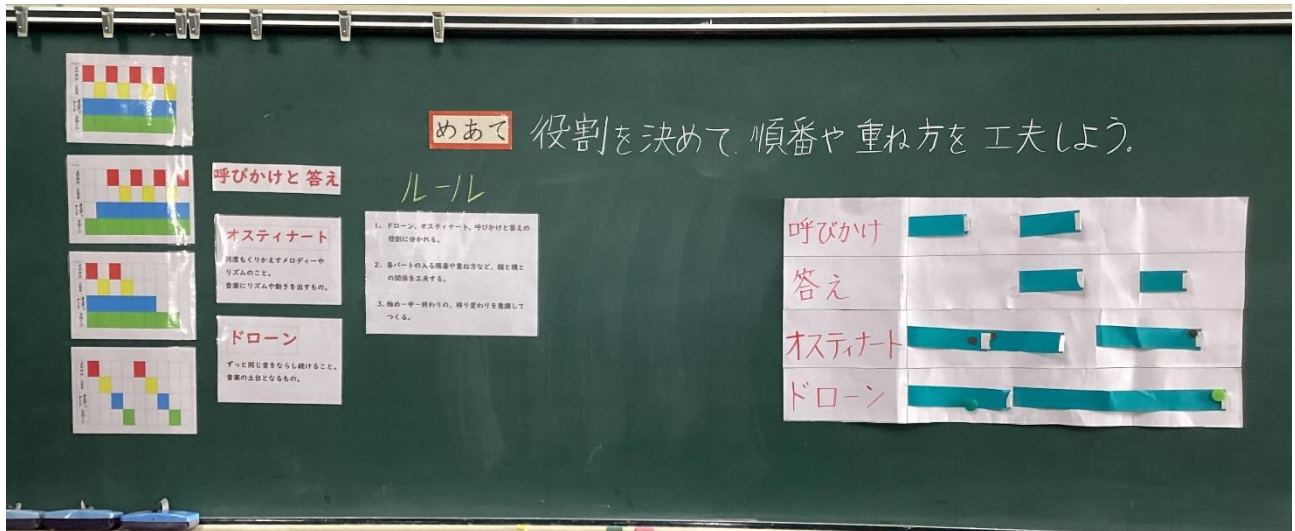 めあて 役割を決めて、順番や重ね方を工夫しよう。
呼びかけと答え
オスティナート
何度もくりかえすメロディーや
リズムのこと。
音楽にリズムや動きを出すもの。
ドローン
ずっと同じ音をならし続けること。
音楽の土台となるもの。
ルール
1. ドローン、オスティナート、呼びかけと答えの
役割に分かれる。
2. 各パートの入る順番や重ね方など、縦と横と
の関係を工夫する。
3. 始め―中―終わりの、移り変わりを意識して
つくる。
呼びかけ
答え
オスティナート
ドローン